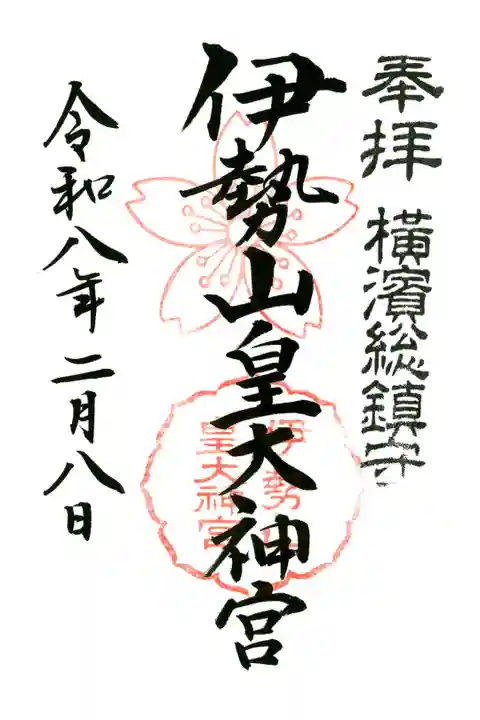 奉拝 横濱総鎮守
伊勢山皇大神宮
伊勢山
皇大神宮
令和八年二月八日